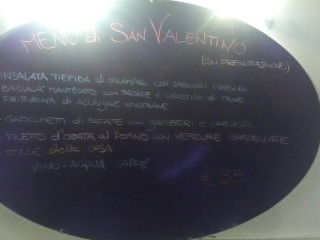 MENÙ di SAN VALENTINO
(SU PRENOTAZIONE)
INSALATA TIEPIDA di CALAMARI CON CARCIOFI FRESCHI
BACCALÀ MANTECATO CON PATATE E
FRITTURINA di ACCIUGHE NOSTRANE
GNOCCHETTI di PATATE CON GAMBERI E CARCIOFI
FILETTO d'ORATA AL FORNO CON VERDURE SPADELLATE
DOLCE della CASA
VINO - ACQUA CAFFÈ
€35